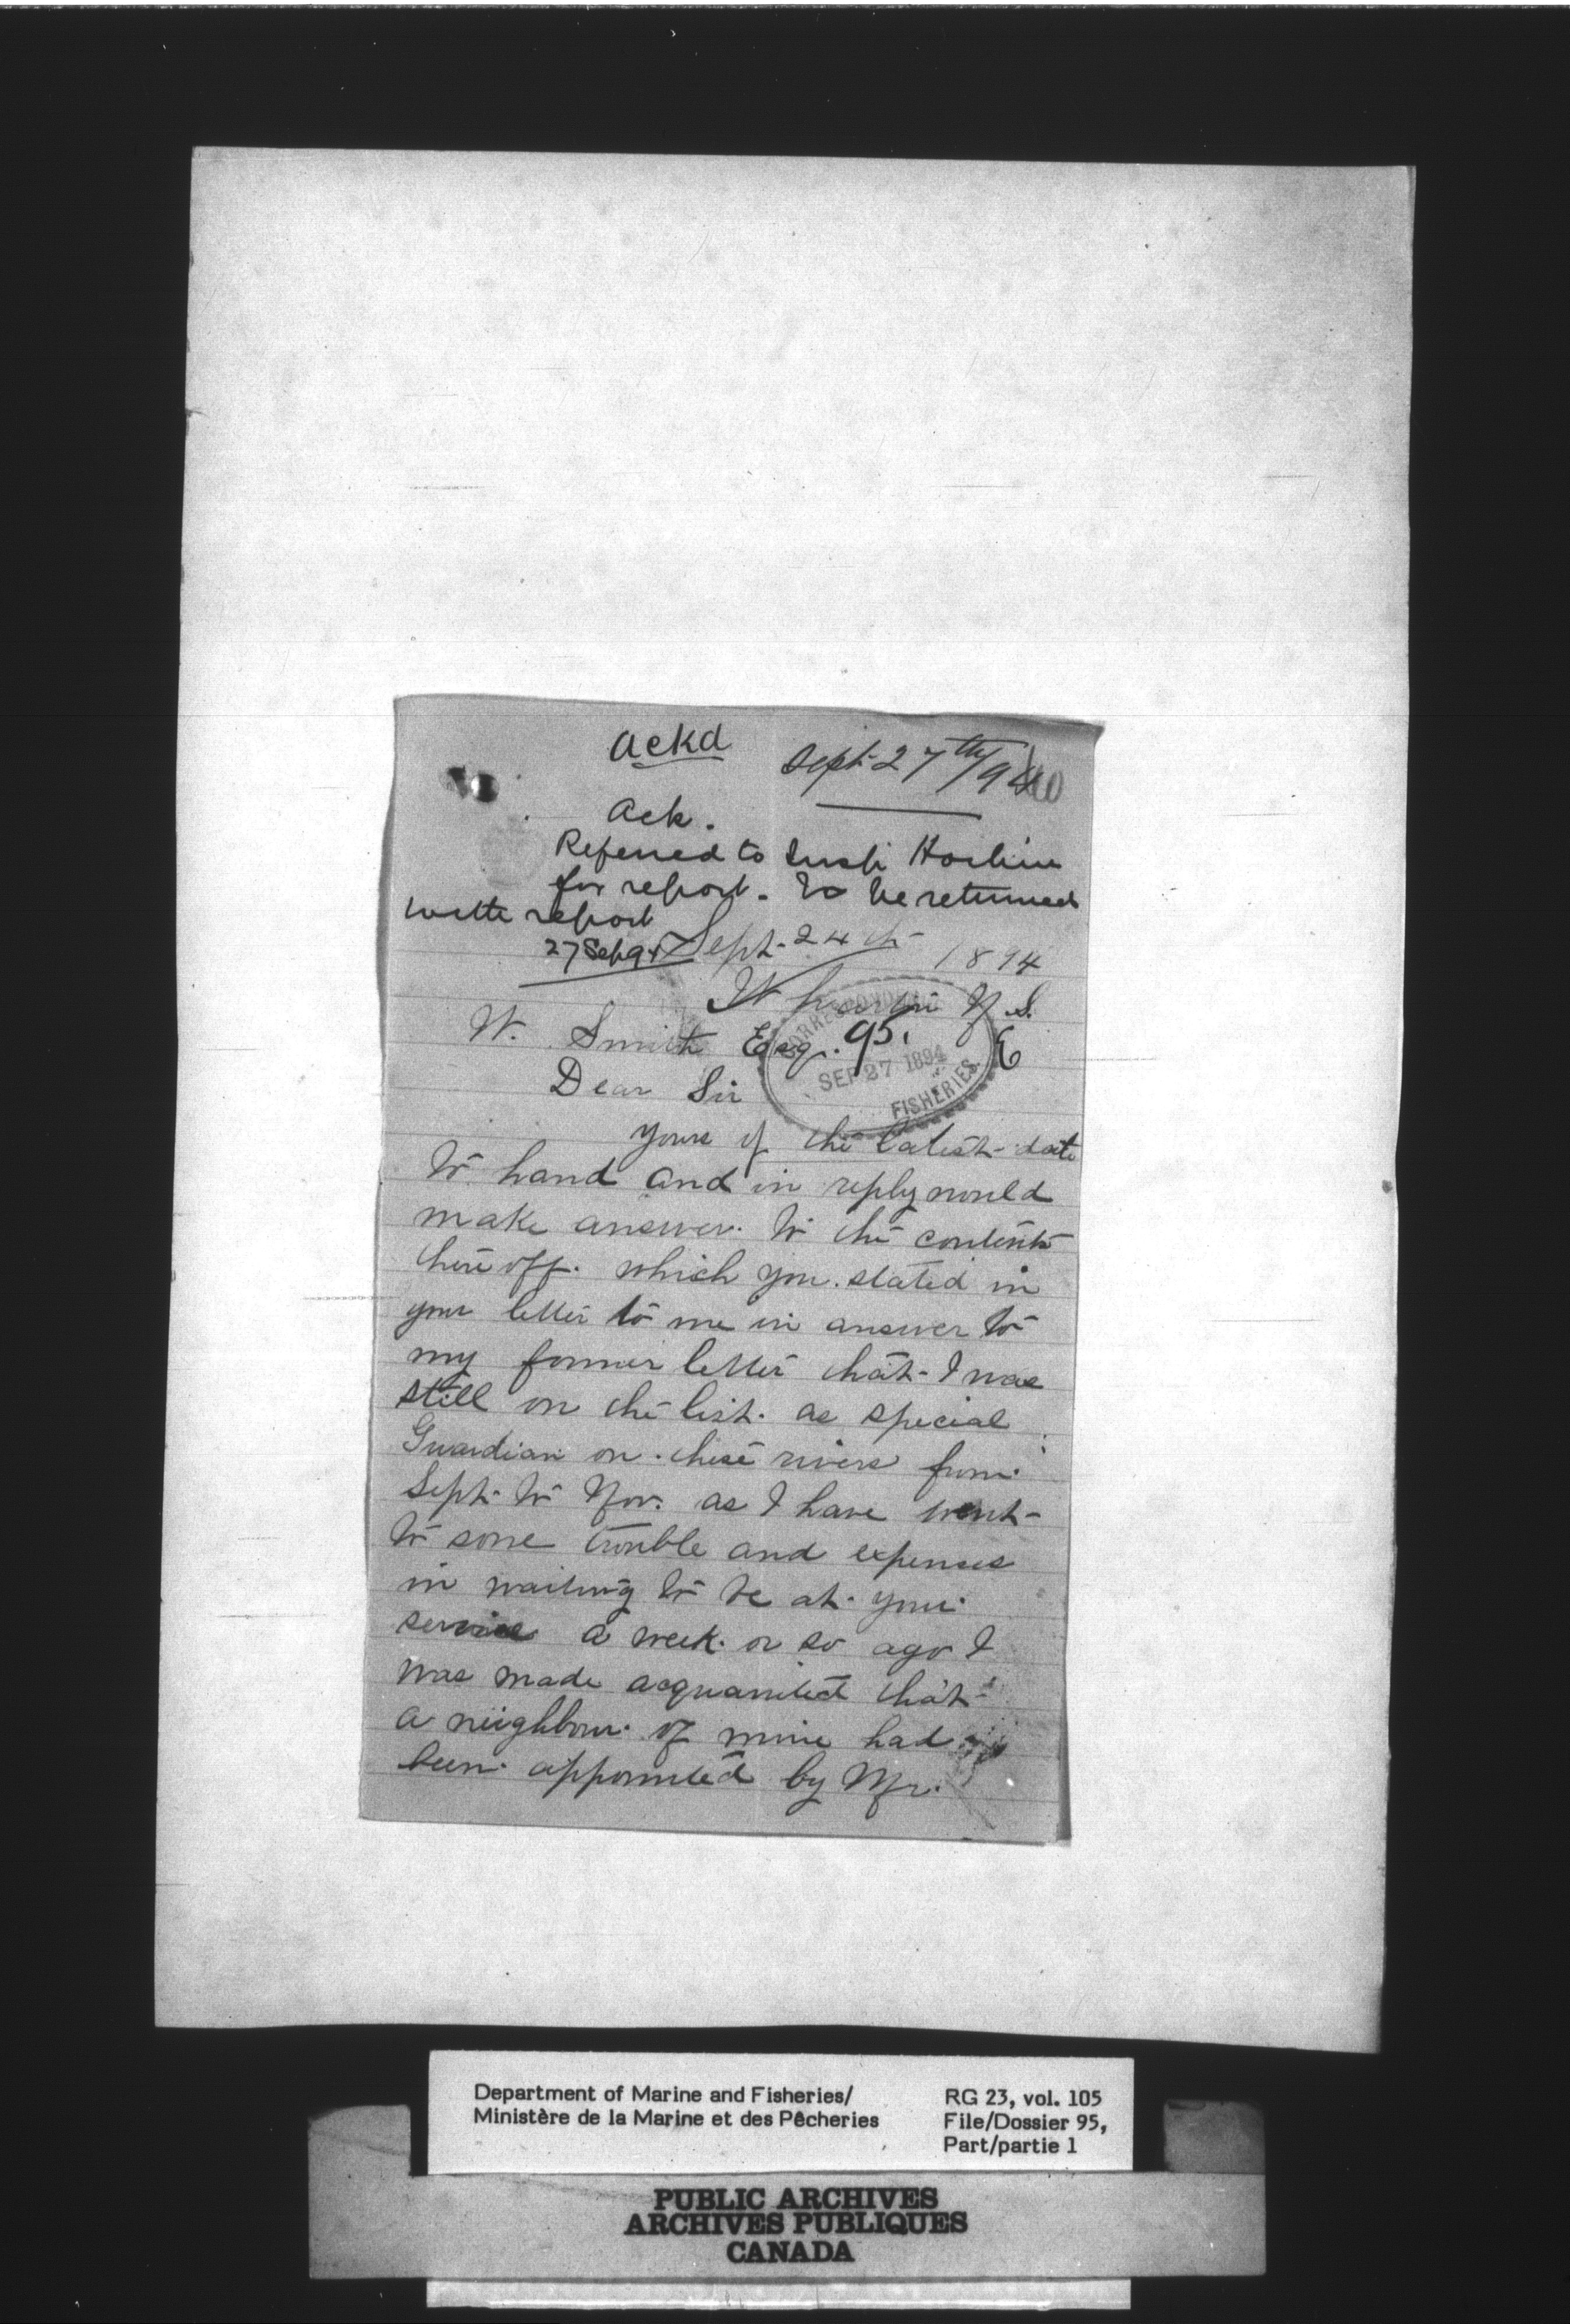 Ackd
Sept 27th/94
Ack.
Referred to Insp Hockin
for report. To be returned
with report
27 Sep 94
Sept. 24th 1894
N.S.
W. Smith Esq.
95.
CORRESPONDENCE
SEP 27 1894
FISHERIES.
Dear Sir
yours of the latest date
to hand and in reply would
make answer. to the contents
there off. which you. stated in
your letter to me in answer to
my former letter that I was
still on the list. as special
Guardian on. these rivers from.
Sept. to Nov. as I have went
to some trouble and expenses
in waiting to be at. your.
service a week. or so ago I
was made acquainted that
a neighbour. of mine had
been. appointed by Mr.
Department of Marine and Fisheries/
Ministère de la Marine et des Pêcheries
RG 23, vol. 105
File/Dossier 95,
Part/partie 1
PUBLIC ARCHIVES
ARCHIVES PUBLIQUES
CANADA